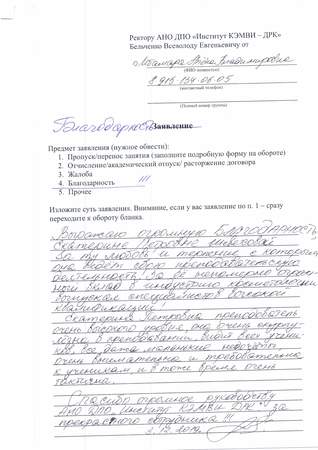 Ректору АНО ДПО «Институт КЭМВИ – ДРК»
Бельченко Всеволоду Евгеньевичу от
Владимировна
(ФИО полностью)
8 915-134-06-05
(контактный телефон)
(Полный номер группы)
Благодарность Заявление
Предмет заявления (нужное обвести):
1. Пропуск/перенос занятия (заполните подробную форму на обороте)
2. Отчисление/академический отпуск/ расторжение договора
3. Жалоба
4. Благодарность !!!
5. Прочее
Изложите суть заявления. Внимание, если у вас заявление по п. 1 – сразу
переходите к обороту бланка.
Выражаю огромную благодарность
Екатерине Петровне
За ту любовь и терпение с которыми
она ведет свою преподавательскую
деятельность! За её
вклад в индустрию
специалистов высокой
квалификации!
Екатерина Петровна преподаватель
очень высокого уровня, она очень
в преподавании. Видит всех учени-
ков, все даже маленькие недочёты
очень внимательна и требовательна
к ученикам, и в тоже время очень
тактична.
Спасибо огромное руководству
АНО ДПО Институт КЭМВИ ДРК за
прекрасного сотрудника !!!